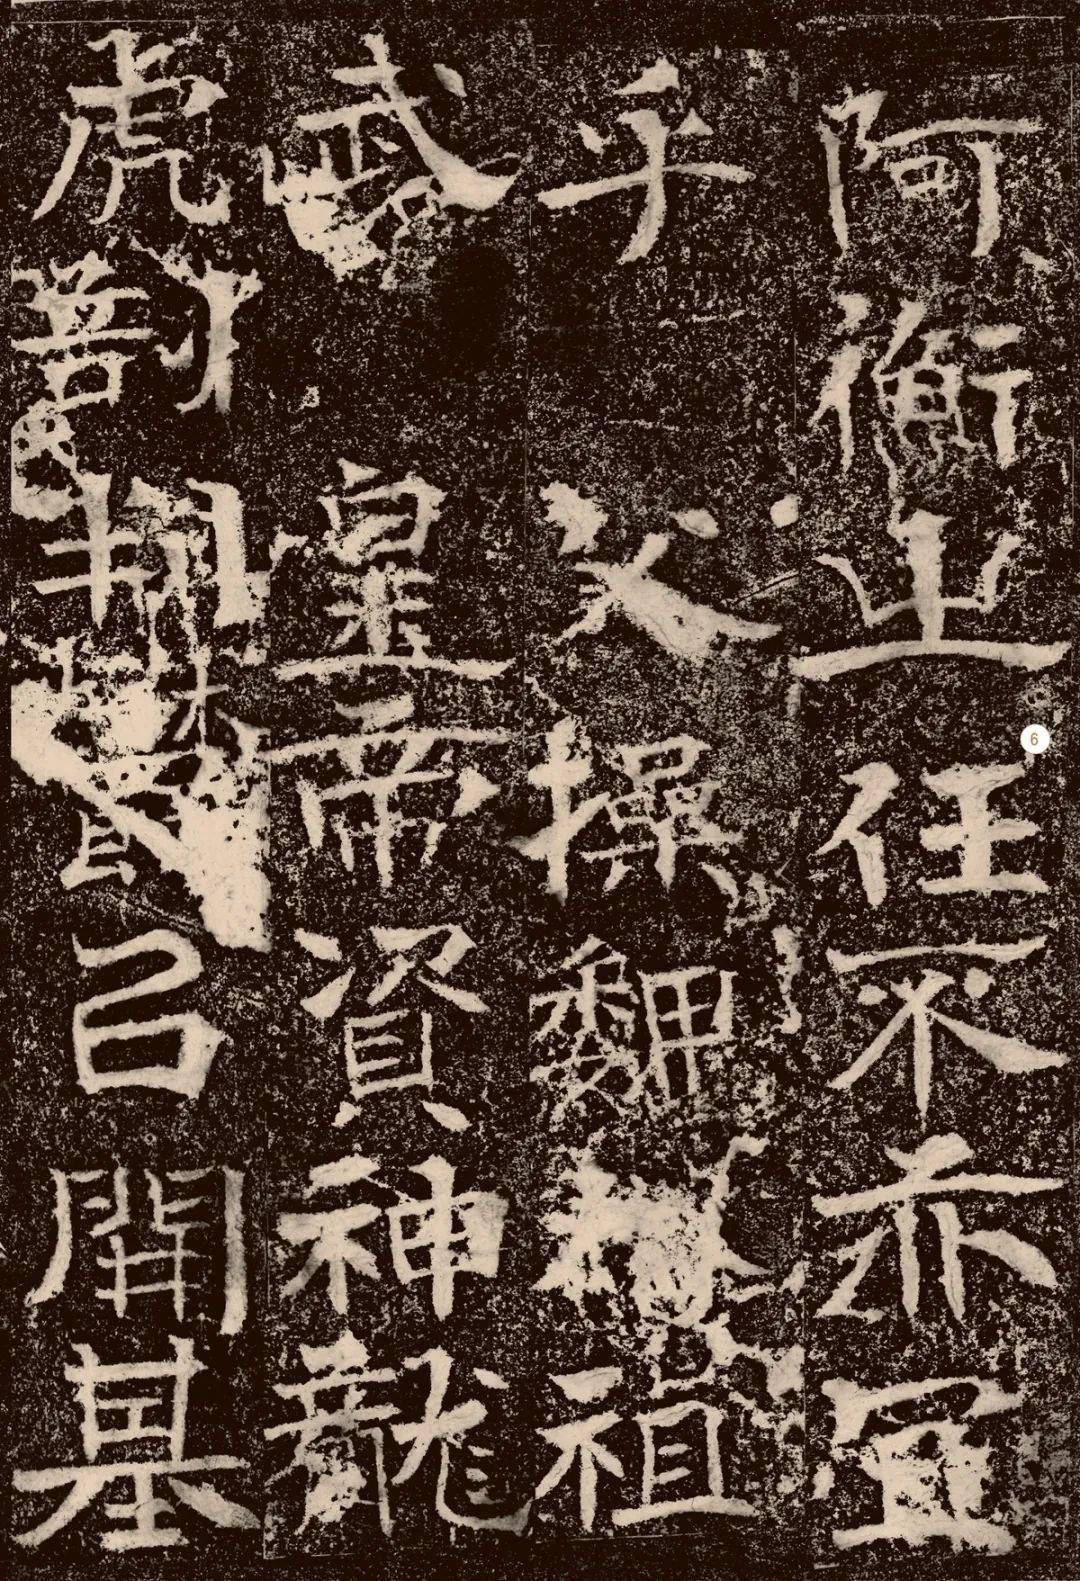 阿衡之任不亦宜
乎 父操魏祖
武 皇帝資神龍
虎罰以開基
6